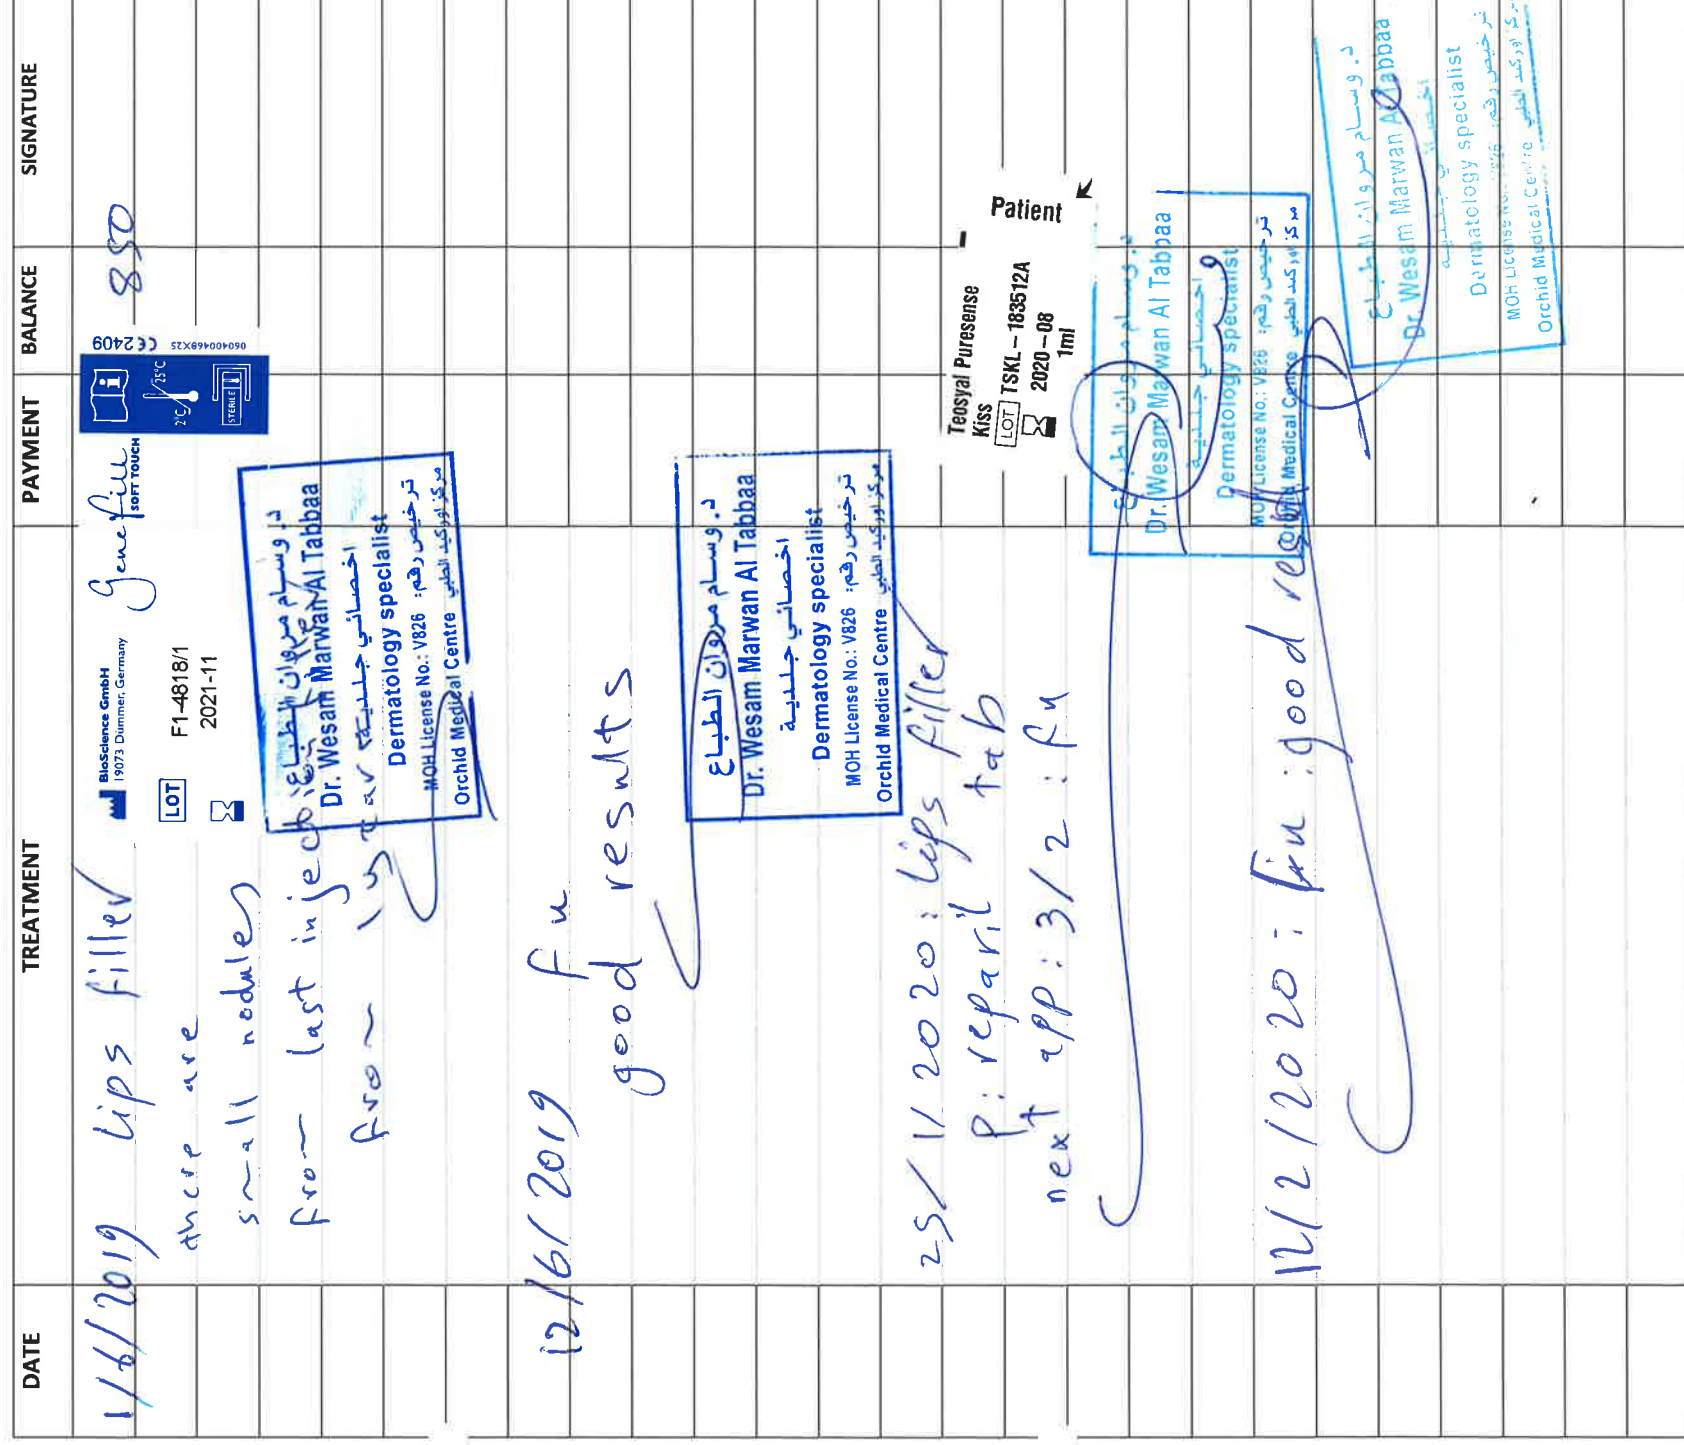 DATE TREATMENT PAYMENT BALANCE SIGNATURE
1/6/2019 Lips filler 850
BioScience GmbH
19073 Dümmer, Germany
LOT F1-4818/1
2021-11
Genefill
SOFT TOUCH
2°C 25°C
STERILE
CE 2409
06040046BX25
there are
small nodules
from last injection
from
د. وسام مروان الطباع
Dr. Wesam Marwan Al Tabbaa
اخصائي جلدية
Dermatology specialist
MOH License No.: V826 ترخيص رقم:
Orchid Medical Centre مركز اوركيد الطبي
12/6/2019 fu
good results
د. وسام مروان الطباع
Dr. Wesam Marwan Al Tabbaa
اخصائي جلدية
Dermatology specialist
MOH License No.: V826 ترخيص رقم:
Orchid Medical Centre مركز اوركيد الطبي
25/1/2020: Lips filler
P: reparil tab
next app: 3/2: fu
Teosyal Puresense
Kiss
LOT TSKL-183512A
2020-08
1ml
Patient
د. وسام مروان الطباع
Dr. Wesam Marwan Al Tabbaa
اخصائي جلدية
Dermatology specialist
MOH License No.: V826 ترخيص رقم:
Orchid Medical Centre مركز اوركيد الطبي
12/2/2020: fu: good result
د. وسام مروان الطباع
Dr. Wesam Marwan Al Tabbaa
اخصائي جلدية
Dermatology specialist
MOH License No.: V826 ترخيص رقم:
Orchid Medical Centre مركز اوركيد الطبي